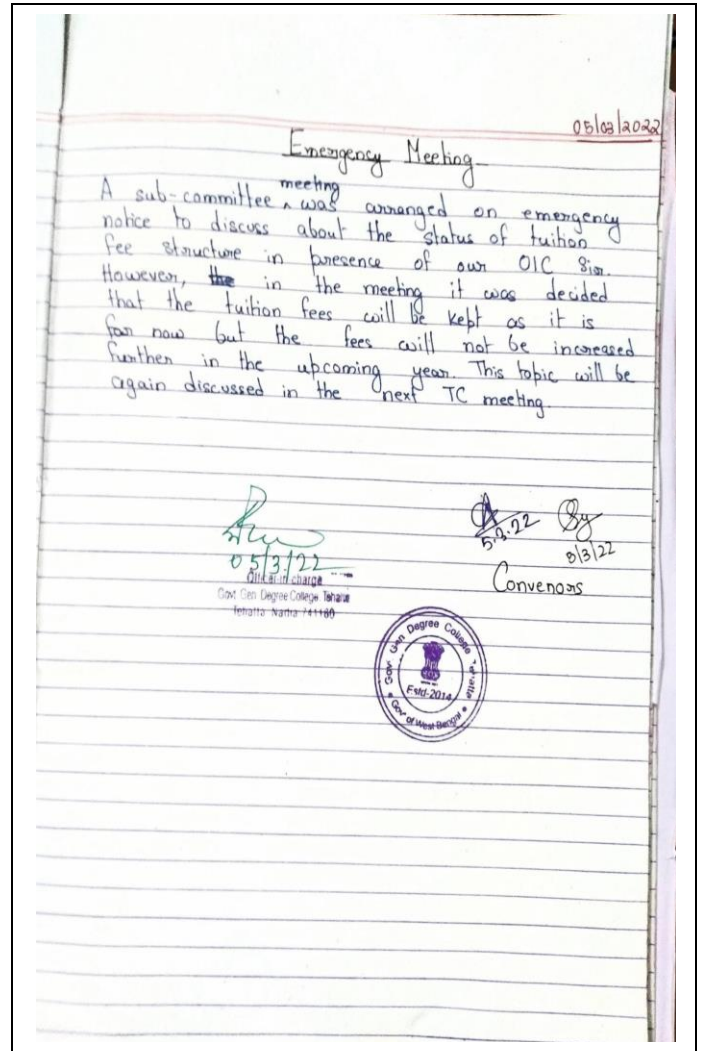 05/03/2022
Emergency Meeting
A sub-committee meeting was arranged on emergency
notice to discuss about the status of tuition
fee structure in presence of our OIC Sir.
However, the in the meeting it was decided
that the tuition fees will be kept as it is
for now but the fees will not be increased
further in the upcoming year. This topic will be
again discussed in the next TC meeting.
05/3/22
Officer-in-charge
Govt Gen Degree College Tehatta
Tehatta Nadia 741160
5.3.22
5/3/22
Convenors
Govt Gen Degree College Tehatta
Estd-2014
Govt of West Bengal